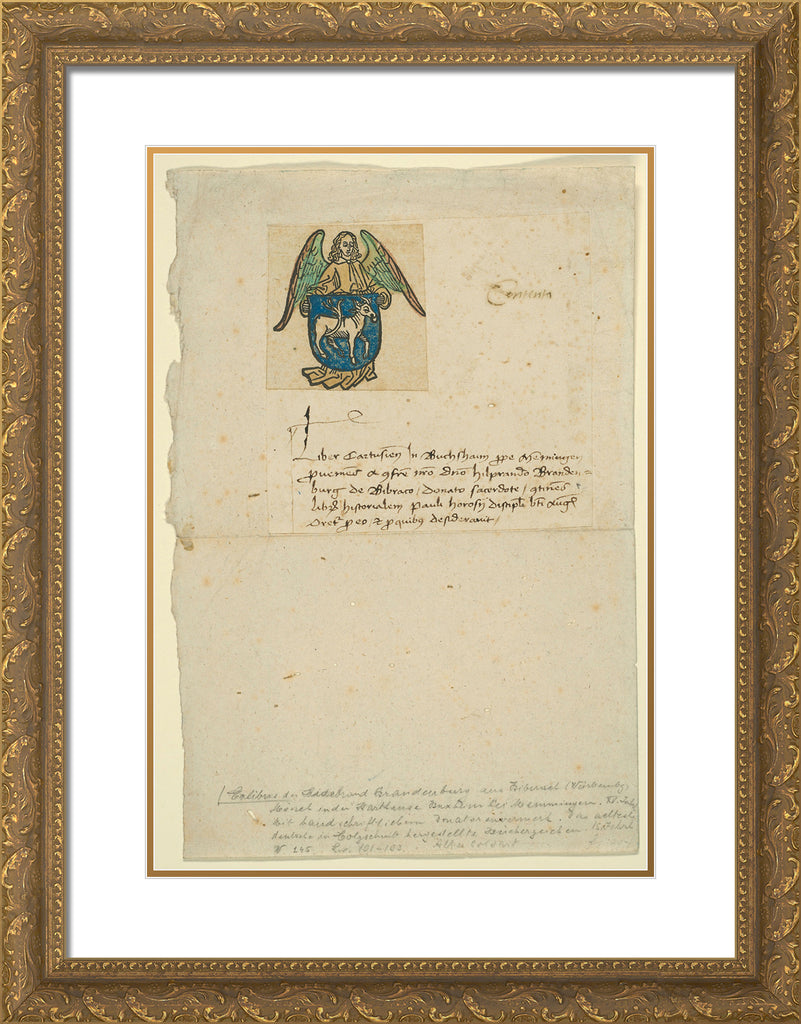 Contenta
Liber Cartusien In Buchshaim ꝓpe Memingen
ꝓueniens a ꝯfre nro dno hilprando Branden=
burg de Bibraco / donato sacerdote / ꝯtinens
libꝝ historialem Pauli horosij discipuli bti Aug
Oretr ꝓ eo et ꝓ quibus desiderauit /
Exlibris des Hildebrand Brandenburg aus Biberach (Württemberg)
Mönch in der Karthause Buxheim bei Memmingen. XV. Jahr
Mit handschriftlichem Donatorenvermerk. Das aelteste
deutsche in Holzschnitt hergestellte Bücherzeichen.
W 245. 101-102. Altkoloriert